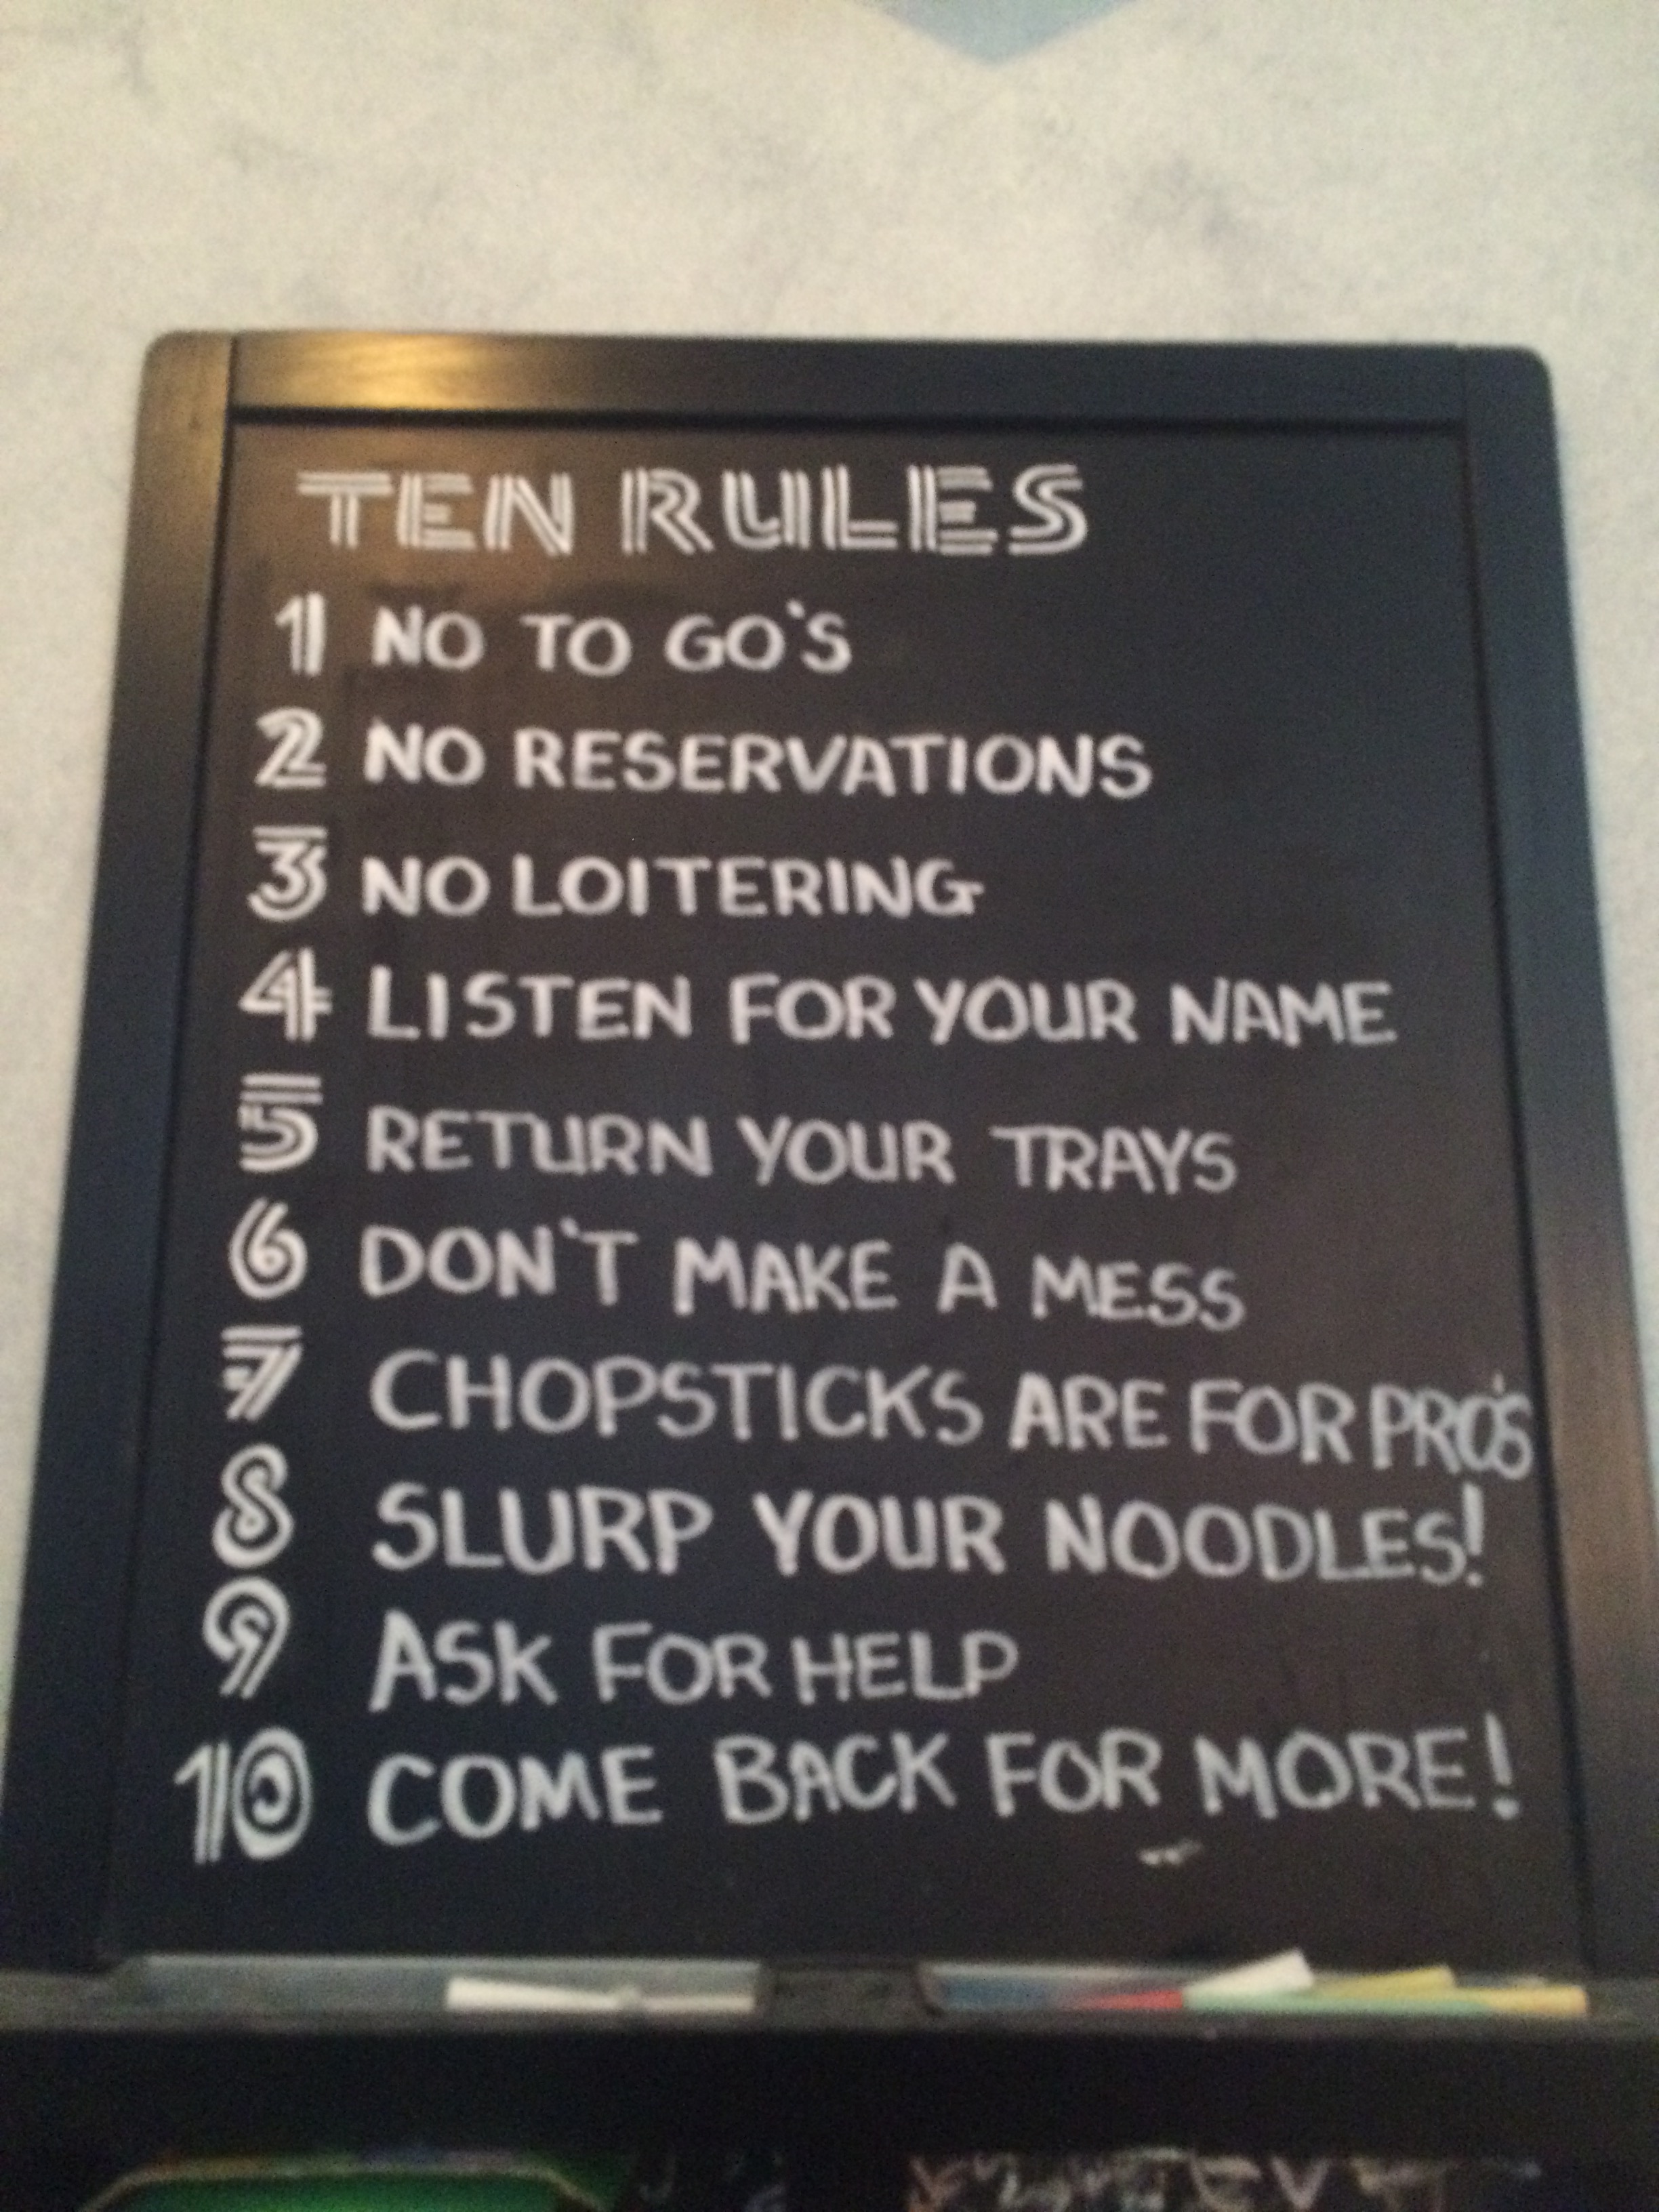 TEN RULES
1 NO TO GO'S
2 NO RESERVATIONS
3 NO LOITERING
4 LISTEN FOR YOUR NAME
5 RETURN YOUR TRAYS
6 DON'T MAKE A MESS
7 CHOPSTICKS ARE FOR PRO'S
8 SLURP YOUR NOODLES!
9 ASK FOR HELP
10 COME BACK FOR MORE!